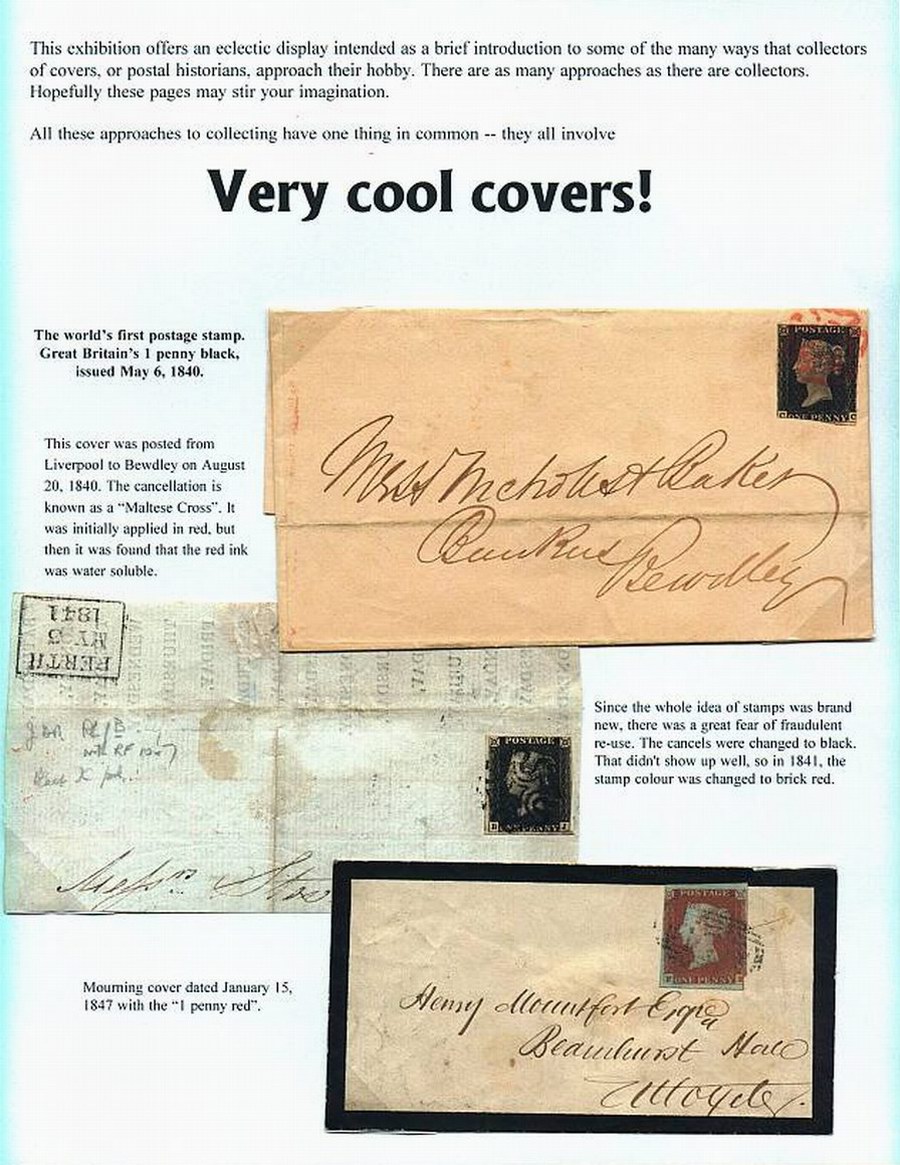 This exhibition offers an eclectic display intended as a brief introduction to some of the many ways that collectors
of covers, or postal historians, approach their hobby. There are as many approaches as there are collectors.
Hopefully these pages may stir your imagination.
All these approaches to collecting have one thing in common -- they all involve
Very cool covers!
The world's first postage stamp.
Great Britain's 1 penny black,
issued May 6, 1840.
POSTAGE
C ONE PENNY C
This cover was posted from
Liverpool to Bewdley on August
20, 1840. The cancellation is
known as a “Maltese Cross”. It
was initially applied in red, but
then it was found that the red ink
was water soluble.
Baker
Bankers
Bewdley
PERTH
MY 5
1841
Since the whole idea of stamps was brand
new, there was a great fear of fraudulent
re-use. The cancels were changed to black.
That didn't show up well, so in 1841, the
stamp colour was changed to brick red.
POSTAGE
PENNY
Messrs
POSTAGE
ONE PENNY
Mourning cover dated January 15,
1847 with the “1 penny red”.
Henry Mountfort Esqre
Beamhurst Hall
Uttoxeter